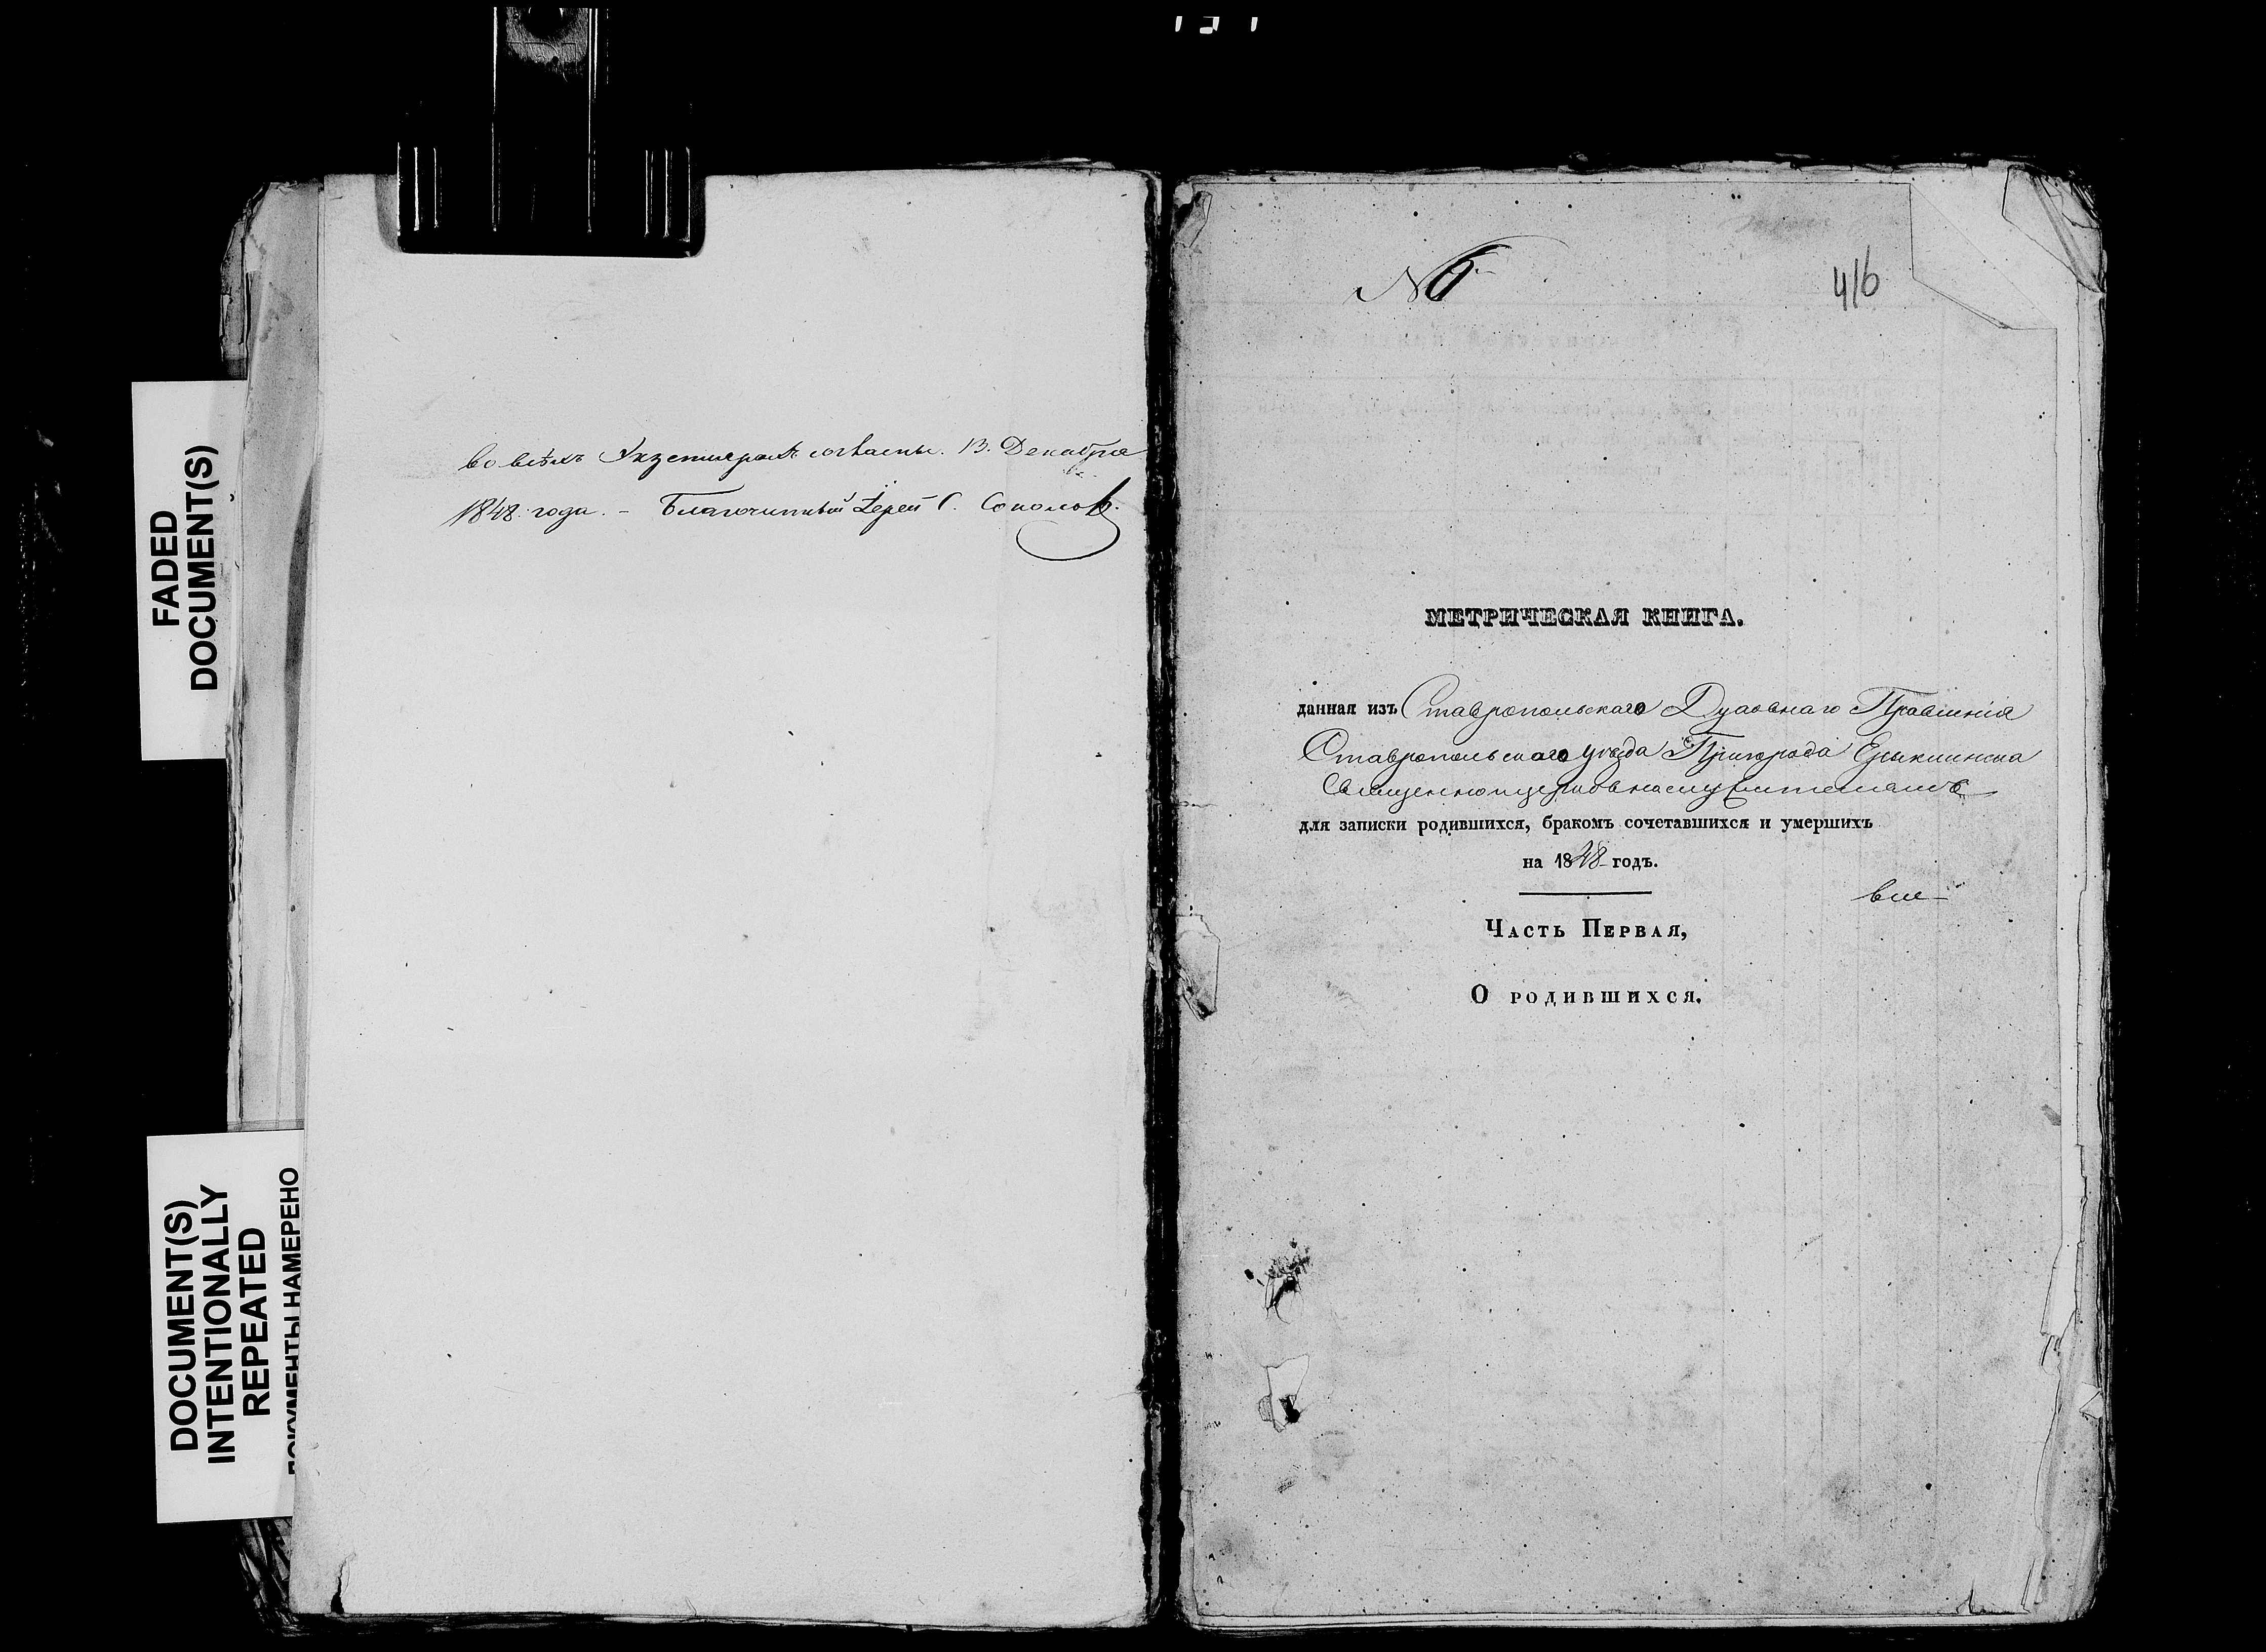 FADED
DOCUMENT(S)
DOCUMENT(S)
INTENTIONALLY
REPEATED
ДОКУМЕНТЫ НАМЕРЕНО
во всѣхъ Экземплярахъ согласны. 13. Декабря
1848. года. – Благочинный Іерей Г. Соколовъ.
№ 6
416
МЕТРИЧЕСКАЯ КНИГА.
данная изъ Ставропольскаго Духовнаго Правленія
Ставропольскаго уѣзда Пригорода Ерыклинска
Священноцерковнослужителямъ
для записки родившихся, бракомъ сочетавшихся и умершихъ
на 1848 годъ.
Часть Первая,
О родившихся.